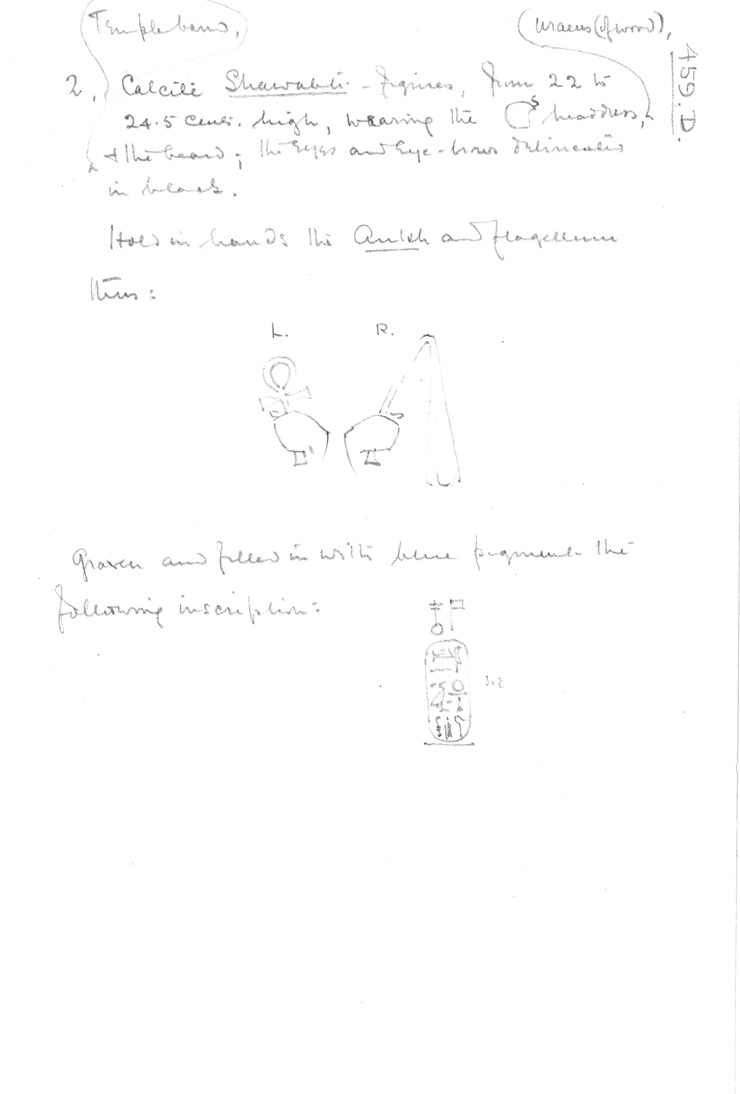 Temple band,
(Uraeus (of wood),
459.D.
2, Calcite Shawabti-figures, from 22 to
24.5 cents. high, wearing the headdress,
& the beard; the Eyes and Eye-brows delineated
in black.
Hold in hands the Ankh and flagellum
thus:
L. R.
Graven and filled in with blue pigment the
following inscription: